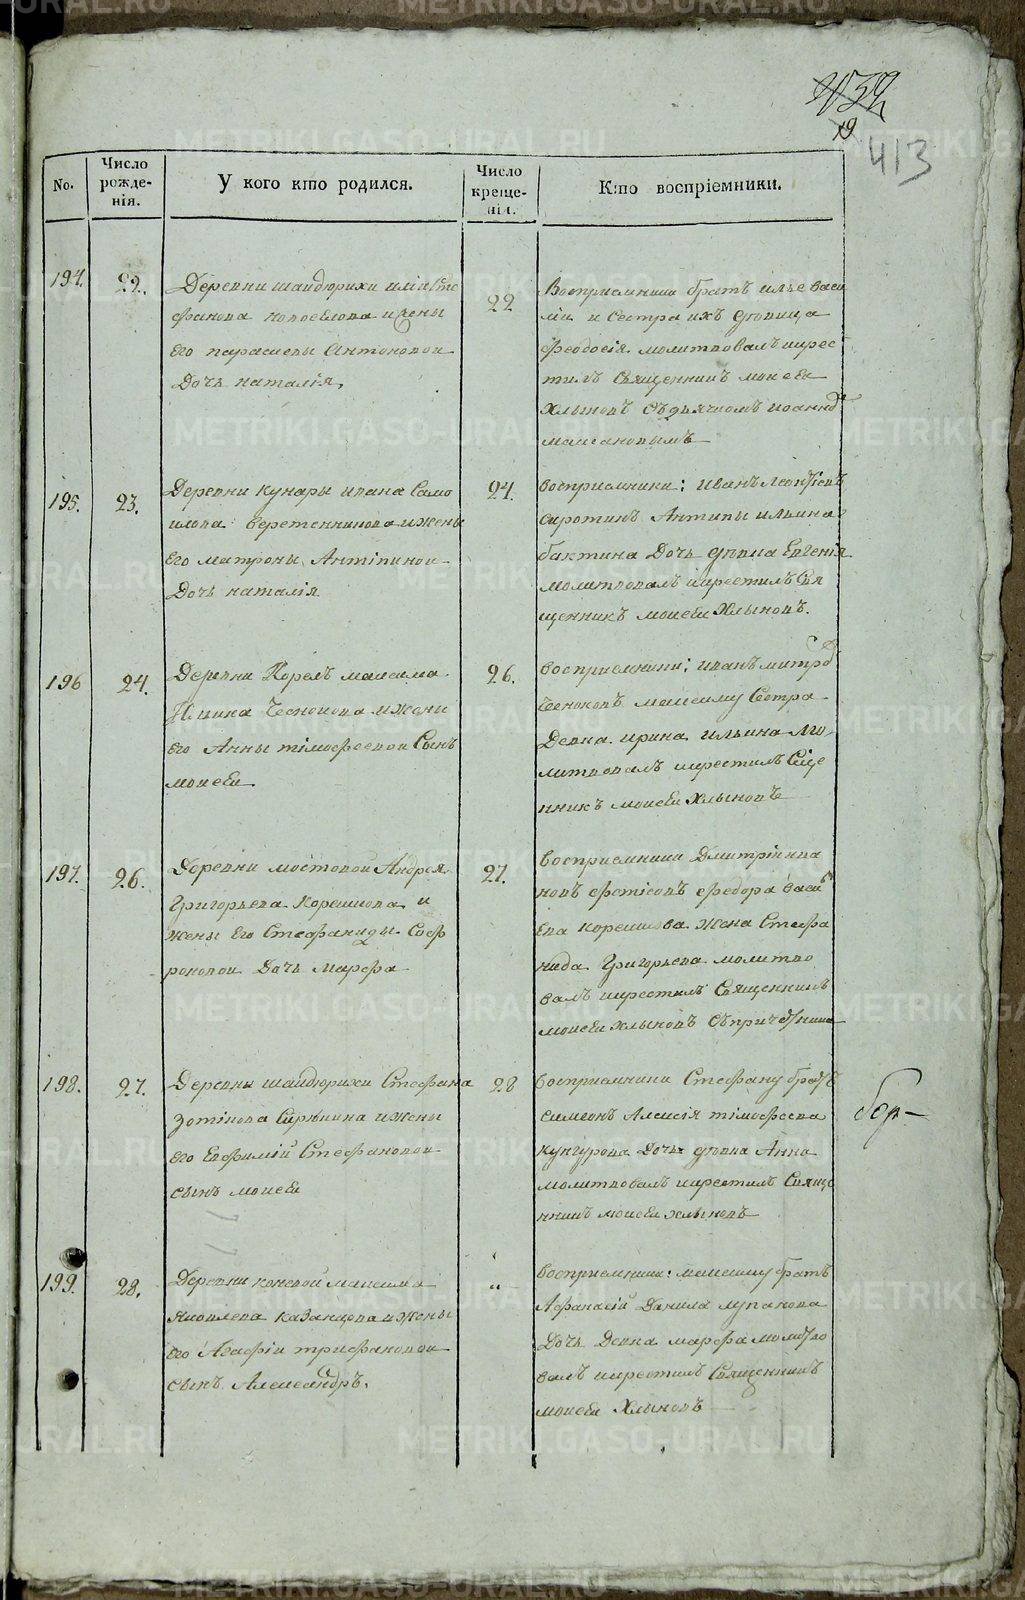 19
413
No.
Число рожде-нія.
У кого кто родился.
Число креще-нія.
Кто воспріемники.
194.
22.
Деревни шайдюрихи иліи Сте
фанова новоселова и жены
его парасковьи Антоновой
Дочь наталія,
22
Восприемники братъ илье васи
лій и сестра ихъ девица
феодосія молитвовалъ и крес
тилъ Священникъ моисей
Хлыновъ съ дьячкомъ
195.
23.
Деревни кунары ивана Само
илова веретенникова и жены
его матроны Антіпиной
Дочь наталія
24.
восприемники: иванъ
сиротинъ Антипы ильина
бактина Дочь девка Евгенія
молитвовалъ и крестилъ Свя
щенникъ моисей Хлыновъ.
196
24.
Деревни Корелъ максима
Ильина Чеснокова и жены
его Анны тімофеевой Сынъ
моисей
26.
восприемники: иванъ
Чесноковъ максиму Сестра
Девка ирина ильина мо
литвовалъ и крестилъ Свще
нникъ моисей хлыновъ
197.
26.
Деревни мостовой Андрея
Григорьева Корешкова и
жены его Стефаниды Соф
роновой Дочь Марфа
27.
восприемники Дмитрій ива
новъ фетісовъ федора васи
ева корешкова жена Стефа
нида Григорьева молитво
валъ и крестилъ Священникъ
моисей хлыновъ
198.
27.
Деревни шайдюрихи Стефана
Зотікова Сирыкина и жены
его Евфимій Стефановой
сынъ моисей
28
восприемники Стефану братъ
симеонъ Алексія тімофеева
кунгурова Дочь девка Анна
молитвовалъ и крестилъ Свяще
нникъ моисей хлыновъ
199.
28.
Деревни коневой максима
Яковлева казанцова и жены
его Агафіи трифановой
сынъ Александръ.
"
восприемники: максиму братъ
Афанасій Данила лупанова
Дочь Девка марфа молитво
валъ и крестилъ Священникъ
моисей Хлыновъ
METRIKI.GASO-URAL.RU